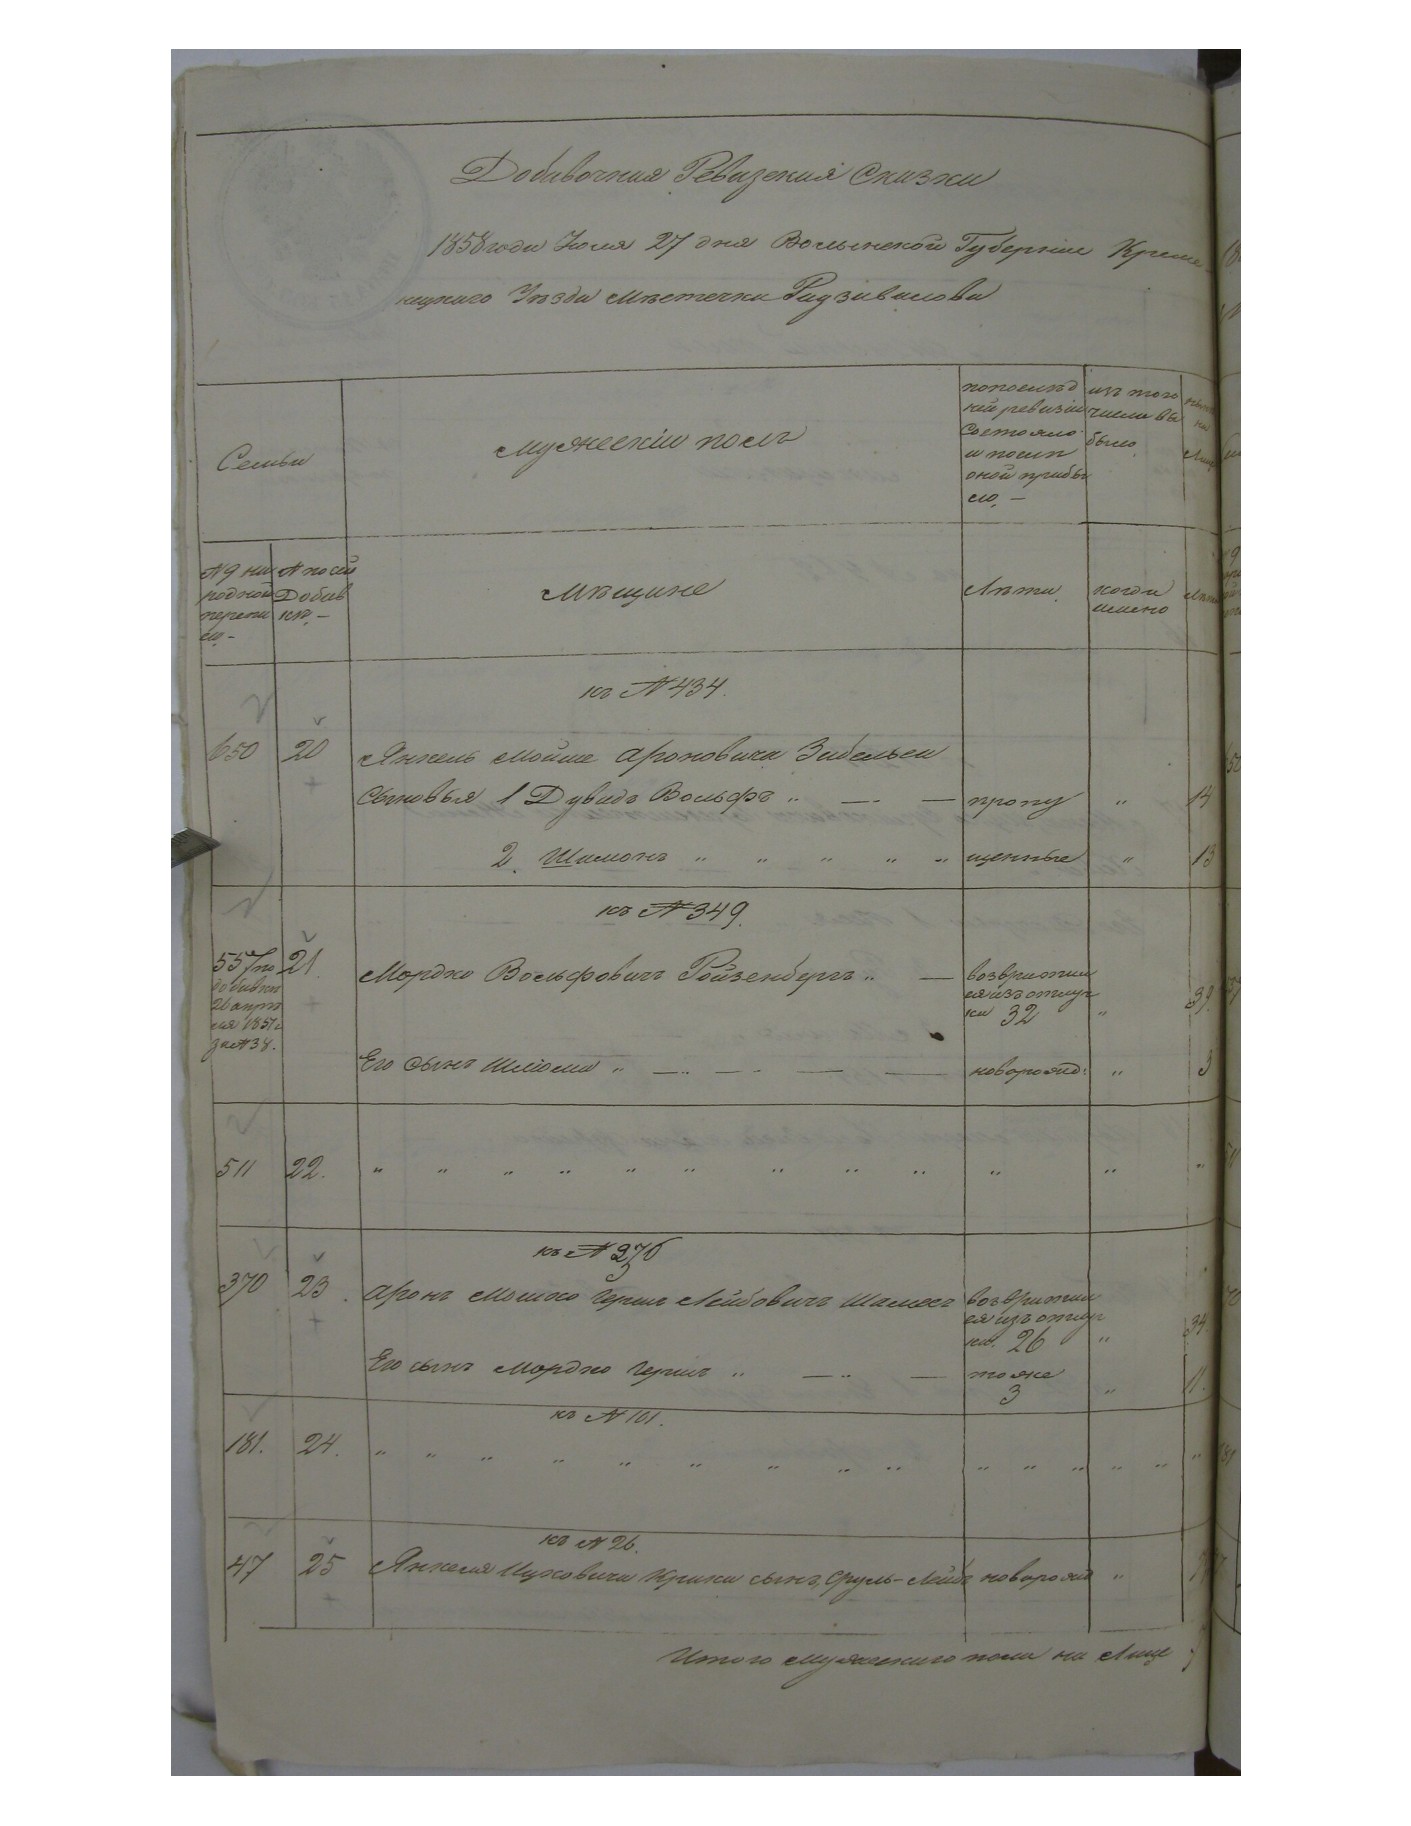 Добавочная Ревизская Сказка
1858 года Июля 27 дня Волынской Губернии Креме-
нецкаго Уѣзда Мѣстечка Радзивилова
Семьи
Мужескій полъ
по послѣд
ней ревизіи
состояло
и послѣ
оной прибы
ло, —
изъ того
числа вы
было
на
Лице
№ 9 на
родной
перепи
си, —
№ по сей
Добав
кѣ, —
Мѣщане
Лѣта
когда
имено
Лѣта
къ № 434.
650 20 Янкель Мойше Ароновича Забельси
Сыновья 1 Дувидъ Вольфъ „ — — пропу „ 14
2. Шимонъ „ „ „ „ „ щенные „ 13
къ № 349.
557 по
добавкѣ
26 апрѣ
ля 1851 г.
за № 38.
21. Мордко Вольфовичъ Ройзенбергъ „ — возвратил
ся изъ отлуч
ки 32 „ 39.
Его Сынъ Шлиома „ — — — — новорожд: „ 3
511 22. „ „ „ „ „ „ „ „ „ „ „ „
къ № 276
370 23. Аронъ Мошко Гершъ Лейбовичъ Шамесъ возвратил
ся изъ отлуч
ки. 26 „ 34.
Его сынъ Мордко Гершъ „ — — тоже
3 „ 11.
къ № 101.
181. 24. „ „ „ „ „ „ „ „ „ „ „ „ „ „ „
къ № 26.
47 25 Янкеля Ицковича Крака сынъ, Сруль-Лейбъ новорожд „
Итого мужескаго пола на Лице 7